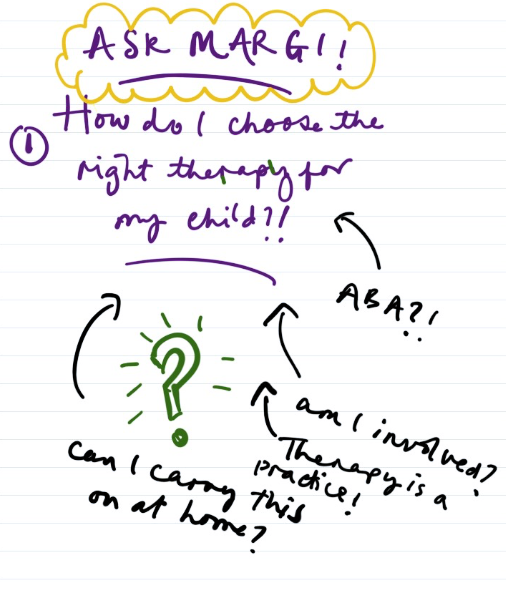 ASK MARGI!
① How do I choose the
right therapy for
my child?!
ABA?!
am I involved?
Therapy is a
practice!
Can I carry this
on at home?
?